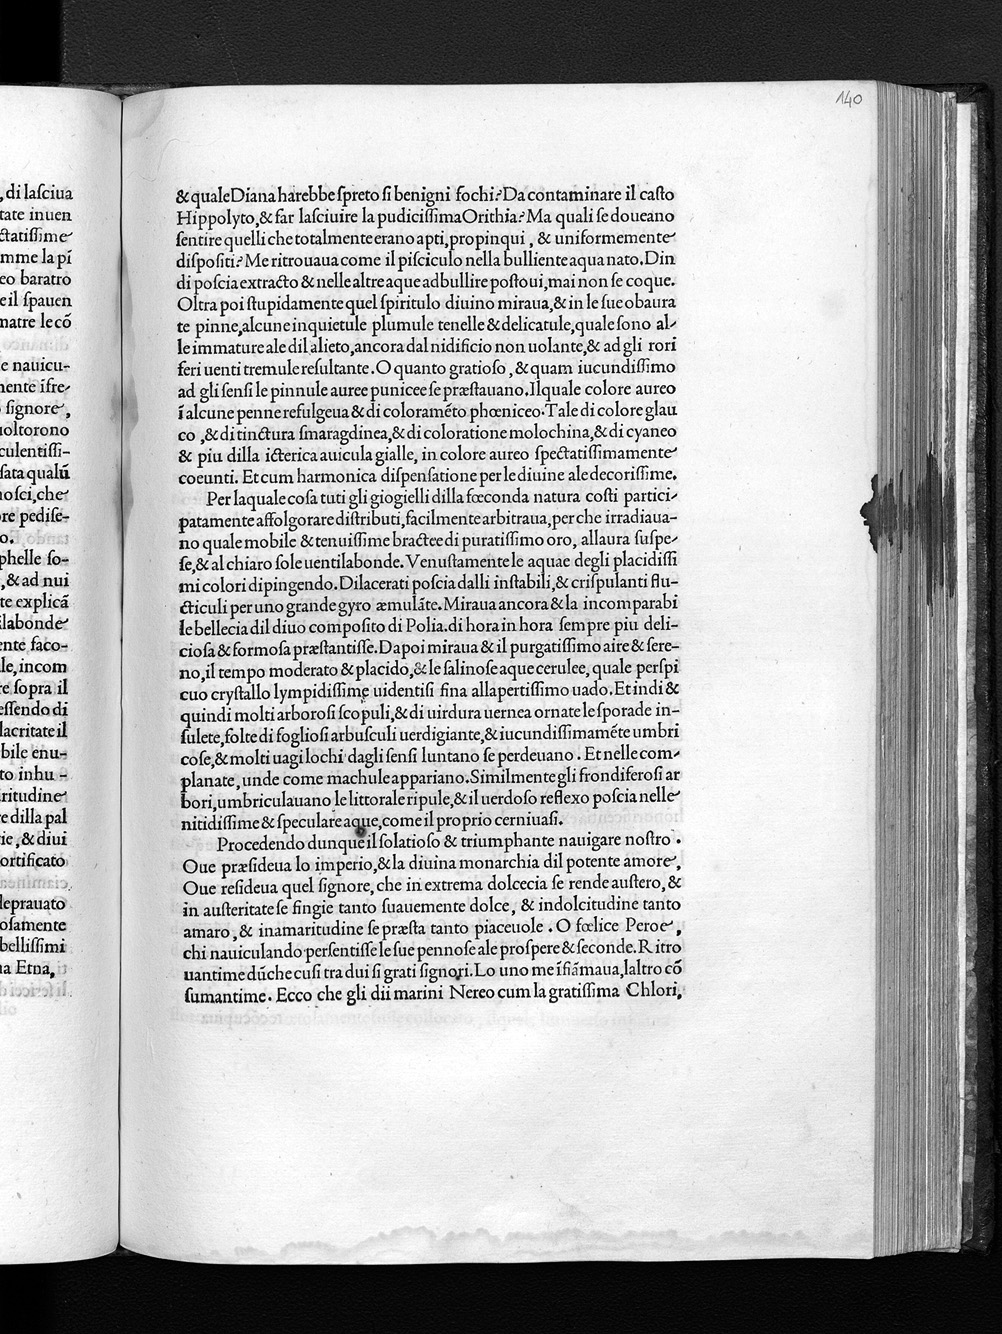 140
, di laſciua
tate inuen
ctatiſſime
mme la pí
eo baratro
e il ſpauen
matre le cõ
e nauicu-
nente ifre-
ſignore,
uoltorono
culentiſſi-
ſata qualũ
noſci, che
re pediſe-
o.
phelle ſo-
, & ad nui
te explicã
labonde
ente faco-
le, incom
re ſopra il
eſſendo di
lacritate il
bile enu-
to inhu-
ritudine
e dilla pal
ie, & diui
ortificato
deprauato
oſamente
belliſſimi
na Etna,
& quale Diana harebbe ſpreto ſi benigni fochi? Da contaminare il caſto
Hippolyto, & far laſciuire la pudiciſſima Orithia? Ma quali ſe doueano
ſentire quelli che totalmente erano apti, propinqui, & uniformemente
diſpoſiti? Me ritrouaua come il piſciculo nella bulliente aqua nato. Din
di poſcia extracto & nelle altre aque ad bullire poſto ui, mai non ſe coque.
Oltra poi ſtupidamente quel ſpiritulo diuino miraua, & in le ſue obaura
te pinne, alcune inquietule plumule tenelle & delicatule, quale ſono al-
le immature ale dil alieto, ancora dal nidificio non uolante, & ad gli rori
feri uenti tremule reſultante. O quanto gratioſo, & quam iucundiſſimo
ad gli ſenſi le pinnule auree punicee ſe præſtauano. Il quale colore aureo
ĩ alcune penne refulgeua & di coloramẽto phœniceo. Tale di colore glau
co, & di tinctura ſmaragdinea, & di coloratione molochina, & di cyaneo
& piu dilla icterica auicula gialle, in colore aureo ſpectatiſſimamente
coeunti. Et cum harmonica diſpenſatione per le diuine ale decoriſſime.
Per laquale coſa tuti gli giogielli dilla fœconda natura coſti partici-
patamente affolgorare diſtributi, facilmente arbitraua, per che irradiaua-
no quale mobile & tenuiſſime bractee di puratiſſimo oro, allaura ſuſpe-
ſe, & al chiaro ſole uentilabonde. Venuſtamente le aquae degli placidiſſi
mi colori dipingendo. Dilacerati poſcia dalli inſtabili, & criſpulanti flu-
cticuli per uno grande gyro æmulãte. Miraua ancora & la incomparabi
le bellecia dil diuo compoſito di Polia. di hora in hora ſempre piu deli-
cioſa & formoſa præſtantiſſe. Dapoi miraua & il purgatiſſimo aire & ſere-
no, il tempo moderato & placido, & le ſalinoſe aque cerulee, quale perſpi
cuo cryſtallo lympidiſſime uidentiſi fina allapertiſſimo uado. Et indi &
quindi molti arboroſi ſcopuli, & di uirdura uernea ornate le ſporade in-
ſulete, folte di foglioſi arbuſculi uerdigiante, & iucundiſſimamẽte umbri
coſe, & molti uagi lochi dagli ſenſi luntano ſe perdeuano. Et nelle com-
planate, unde come machule appariano. Similmente gli frondiferoſi ar
bori, umbriculauano le littorale ripule, & il uerdoſo reflexo poſcia nelle
nitidiſſime & ſpeculare aque, come il proprio cerniuaſi.
Procedendo dunque il ſolatioſo & triumphante nauigare noſtro.
Oue præſideua lo imperio, & la diuina monarchia dil potente amore,
Oue reſideua quel ſignore, che in extrema dolcecia ſe rende auſtero, &
in auſteritate ſe fingie tanto ſuauemente dolce, & indolcitudine tanto
amaro, & inamaritudine ſe præſta tanto piaceuole. O fœlice Peroe,
chi nauiculando perſentiſſe le ſue pennoſe ale proſpere & ſeconde. Ritro
uantime dũche cuſi tra dui ſi grati ſignori. Lo uno me ĩfiãmaua, laltro cõ
ſumantime. Ecco che gli dii marini Nereo cum la gratiſſima Chlori,